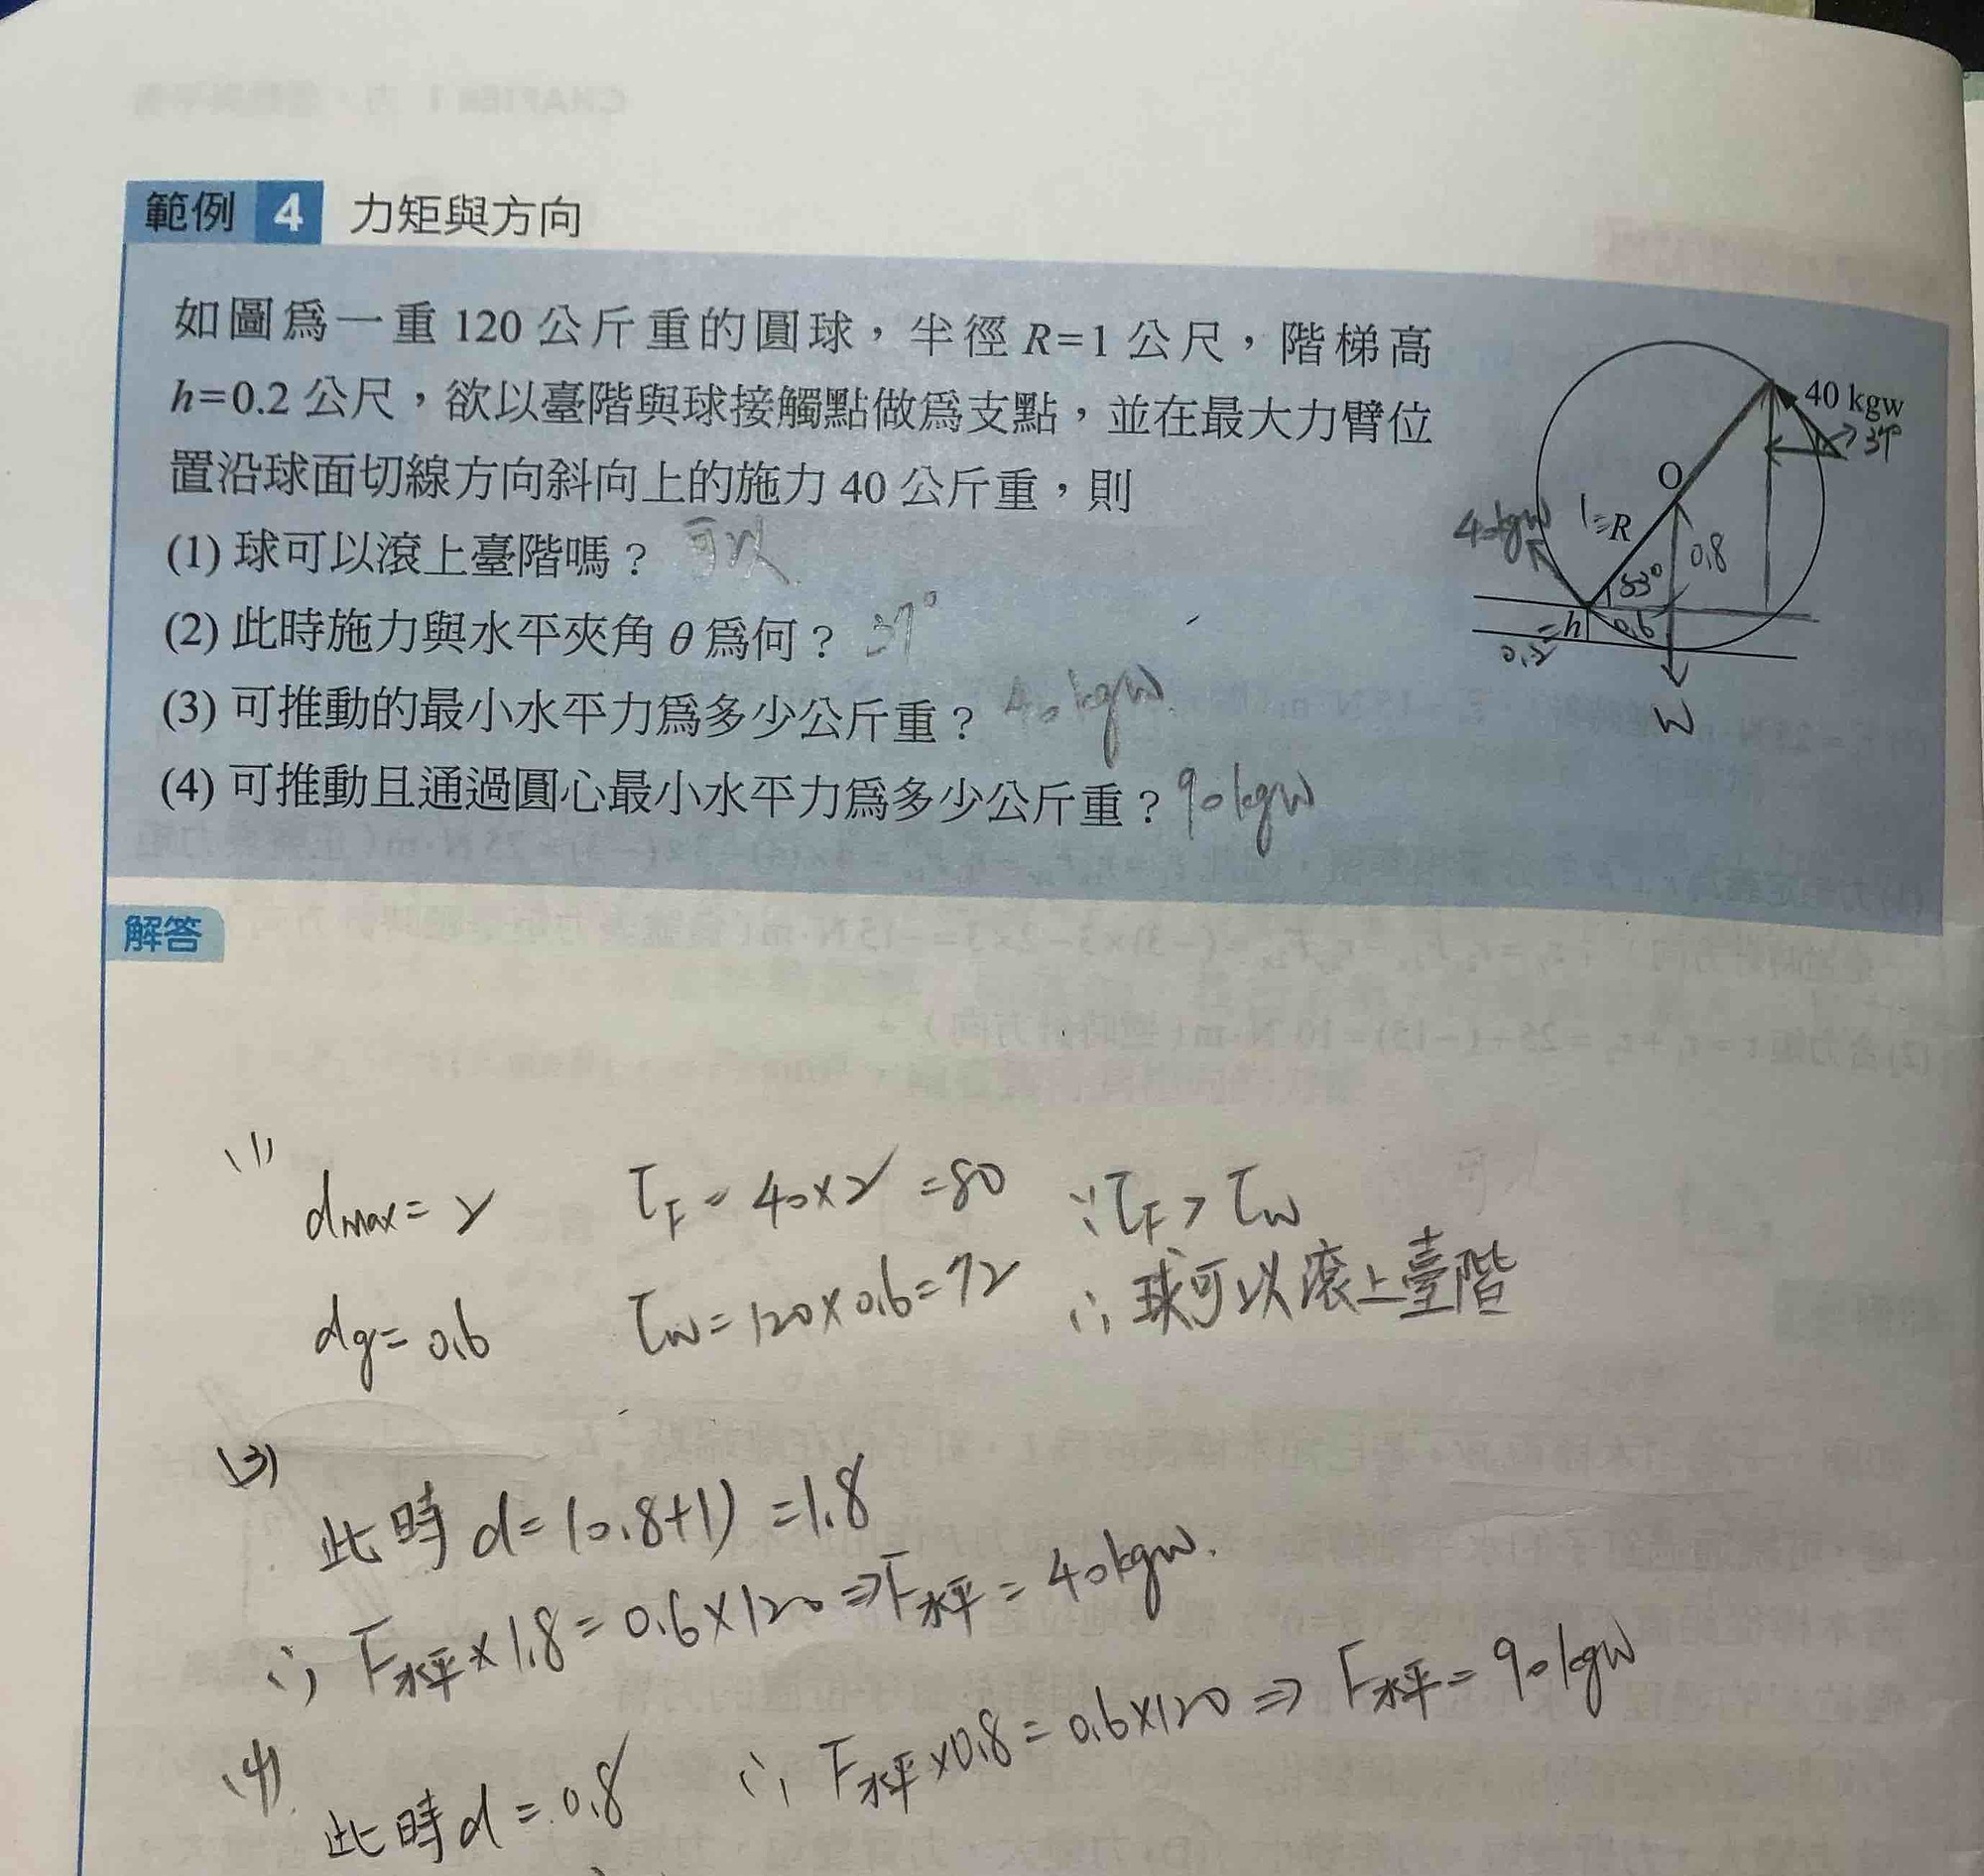 範例 4 力矩與方向
如圖為一重 120 公斤重的圓球，半徑 R=1 公尺，階梯高
h=0.2 公尺，欲以臺階與球接觸點做為支點，並在最大力臂位
置沿球面切線方向斜向上的施力 40 公斤重，則
(1) 球可以滾上臺階嗎？ 可以
(2) 此時施力與水平夾角 θ 為何？ 37°
(3) 可推動的最小水平力為多少公斤重？ 40 kgw
(4) 可推動且通過圓心最小水平力為多少公斤重？ 90kgw
40 kgw
37°
O
1=R
0.8
53°
h
0.6
0.2
W
解答
(1)
dmax=2 τF=40×2=80 ∵τF>τW
dg=0.6 τW=120×0.6=72 ∴球可以滾上臺階
(3)
此時 d=(0.8+1)=1.8
∴ F水平×1.8=0.6×120⇒F水平=40kgw.
(4)
此時d=0.8 ∴ F水平×0.8=0.6×120⇒F水平=90kgw